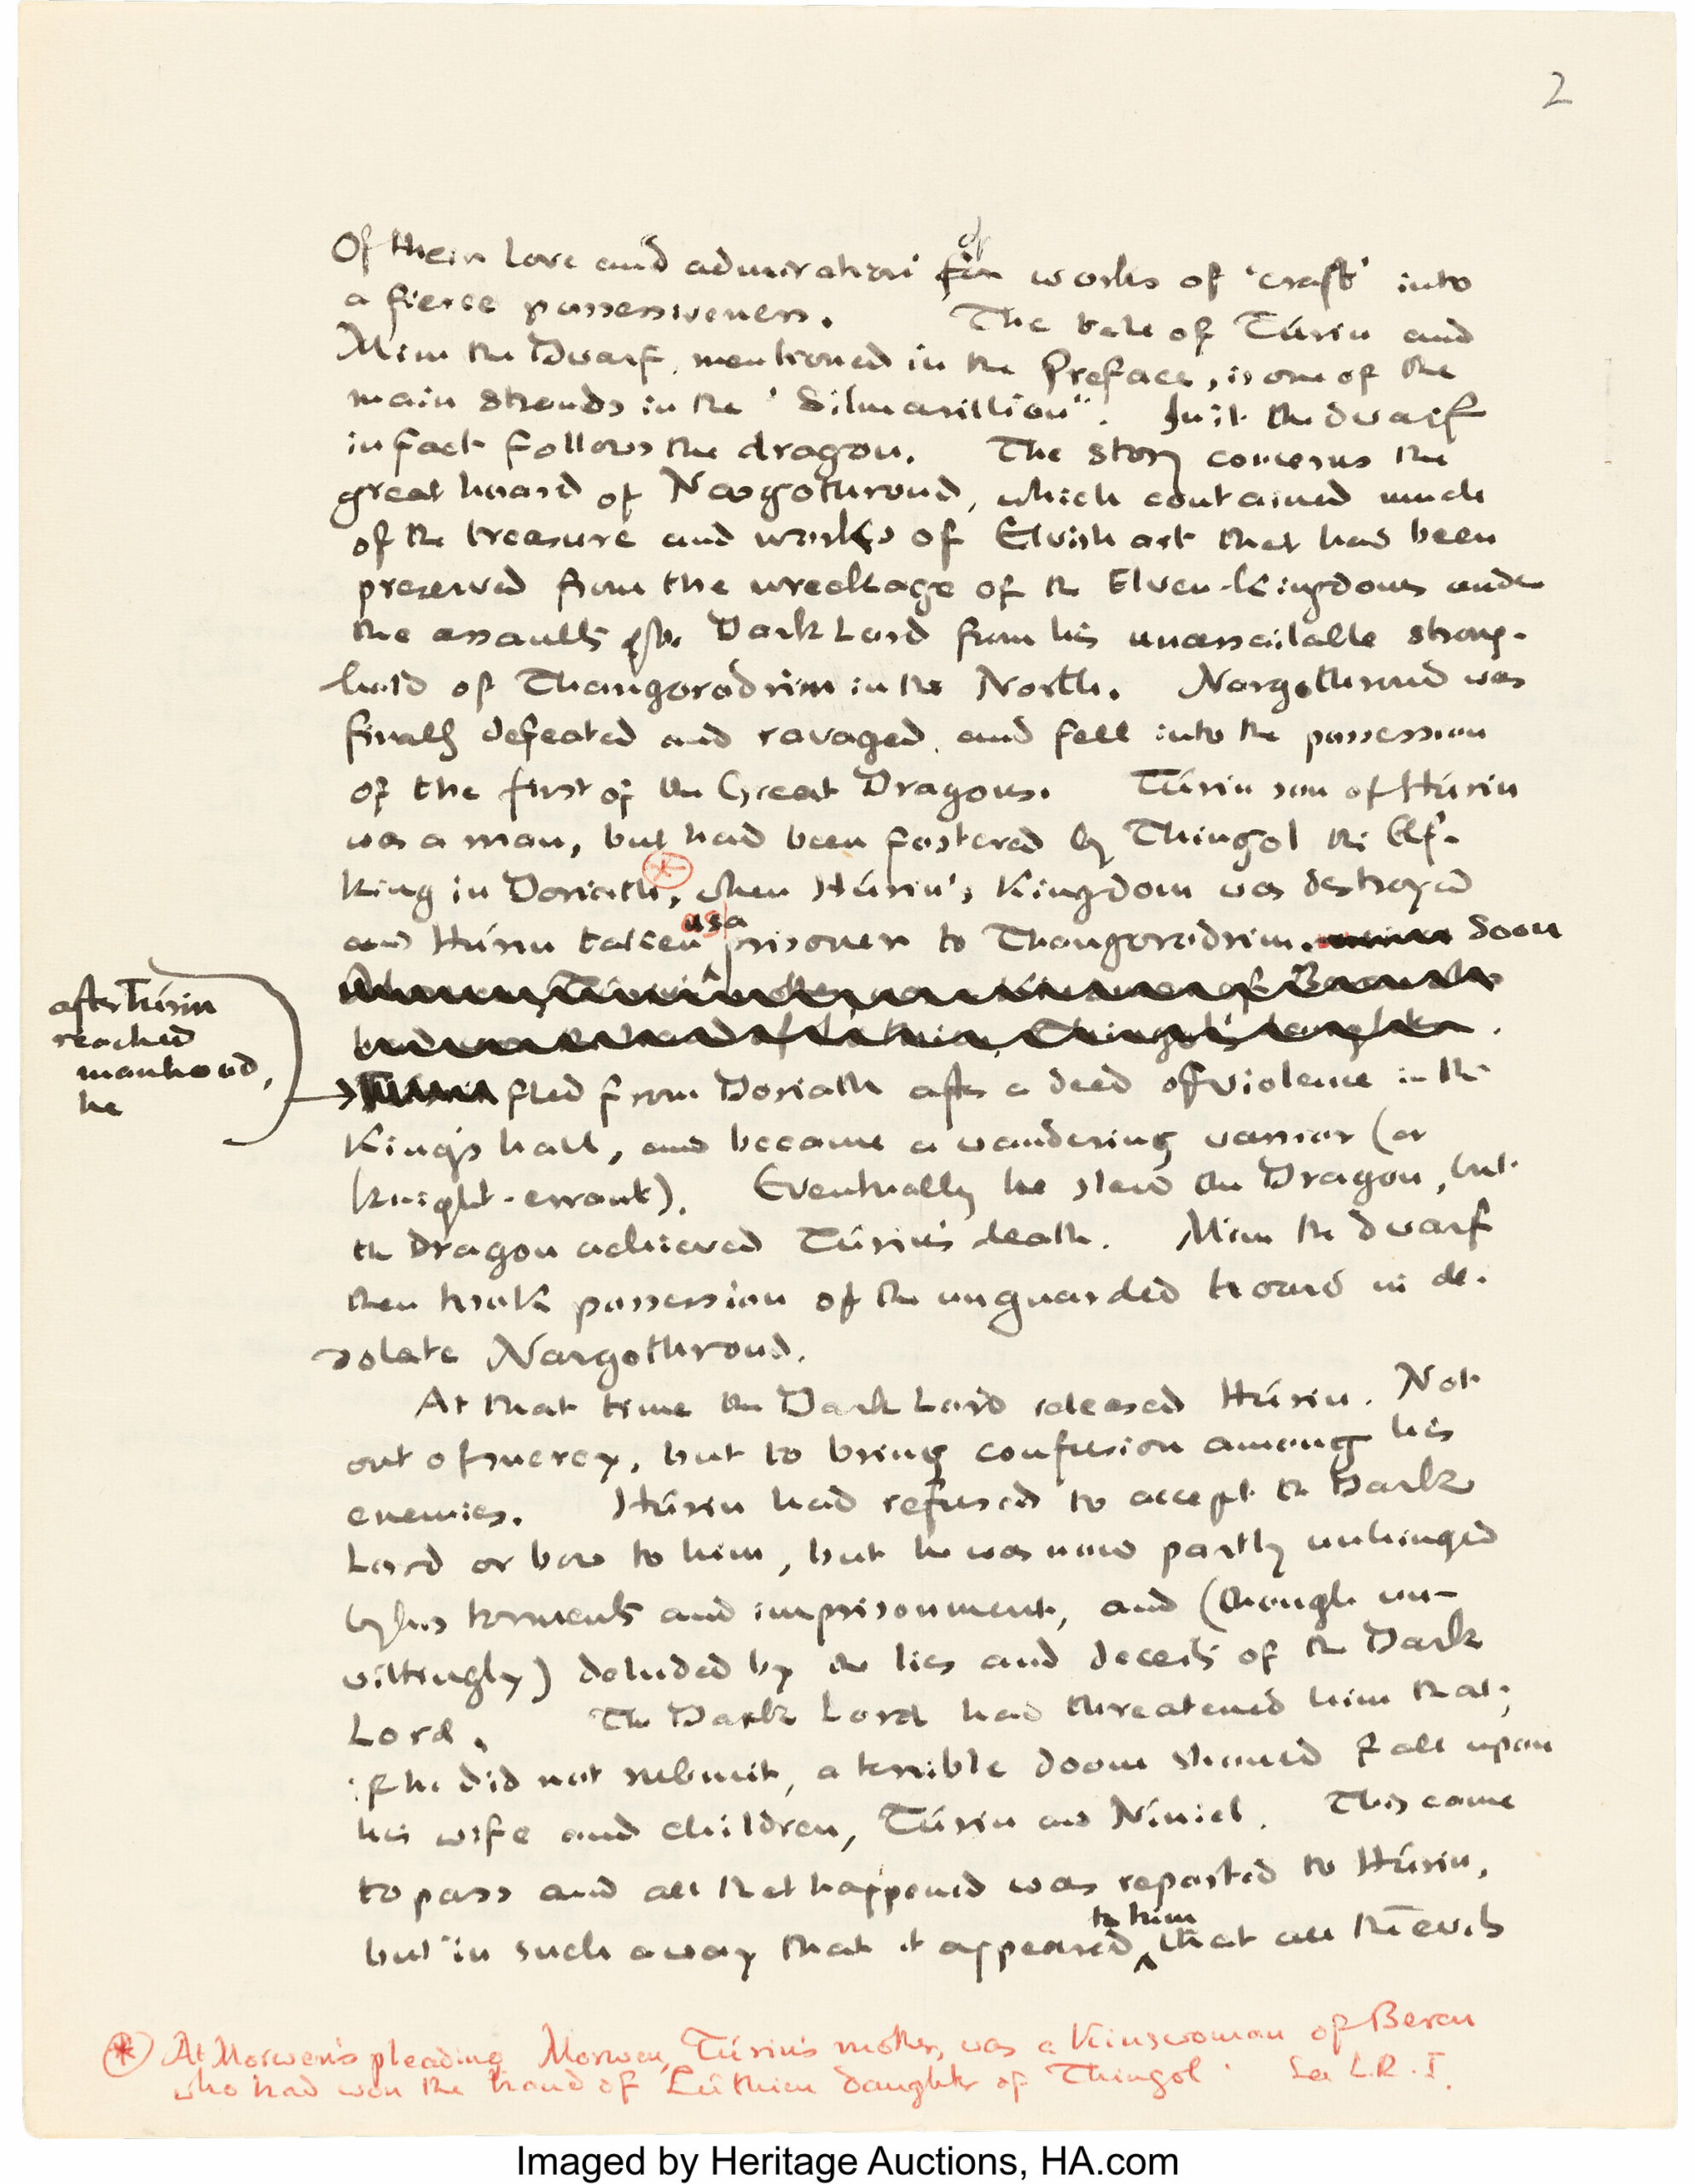 2
of
Of their love and admiration for works of 'craft' into
a fierce possessiveness. The tale of Túrin and
Mîm the Dwarf, mentioned in the Preface, is one of the
main strands in the 'Silmarillion". In it the dwarf
in fact follows the dragon. The story concerns the
great hoard of Nargothrond, which contained much
of the treasure and works of Elvish art that had been
preserved from the wreckage of the Elven-kingdoms under
the assaults of the Dark Lord from his unassailable strong-
hold of Thangorodrim in the North. Nargothrond was
finally defeated and ravaged, and fell into the possession
of the first of the Great Dragons. Túrin son of Húrin
was a man, but had been fostered by Thingol the Elf-
king in Doriath*, when Húrin's Kingdom was destroyed
as a
and Húrin taken prisoner to Thangorodrim. Soon
after Túrin
reached
manhood,
he
fled from Doriath after a deed of violence in the
King's hall, and became a wandering warrior (or
knight-errant). Eventually he slew the Dragon, but
the Dragon achieved Túrin's death. Mîm the dwarf
then took possession of the unguarded hoard in de-
solate Nargothrond.
At that time the Dark Lord released Húrin. Not
out of mercy, but to bring confusion among his
enemies. Húrin had refused to accept the Dark
Lord or bow to him, but he was now partly unhinged
by his torments and imprisonment, and (though un-
wittingly) deluded by the lies and deceits of the Dark
Lord. The Dark Lord had threatened him that,
if he did not submit, a terrible doom should fall upon
his wife and children, Túrin and Níniel. This came
to pass and all that happened was reported to Húrin,
to him
but in such a way that it appeared that all the evils
* At Morwen's pleading Morwen, Túrin's mother, was a kinswoman of Beren
who had won the hand of Lúthien daughter of Thingol. See L.R. I.
Imaged by Heritage Auctions, HA.com